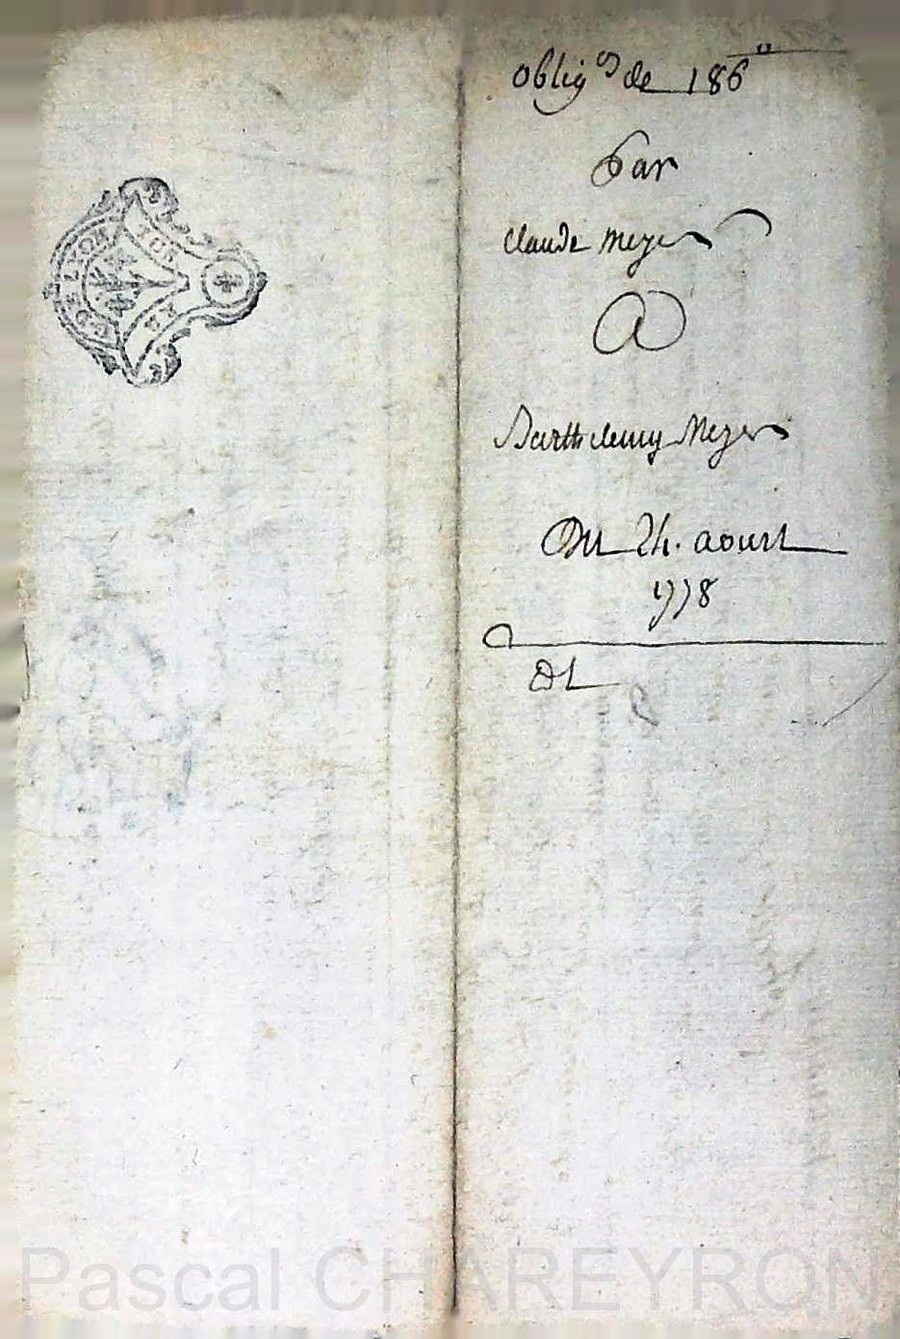 obligon de 186"
Par
Claude Meyer
A
Barthelemy Meyer
Du 24. aoust
1778
DL
G. DE LYON
Pascal CHAREYRON